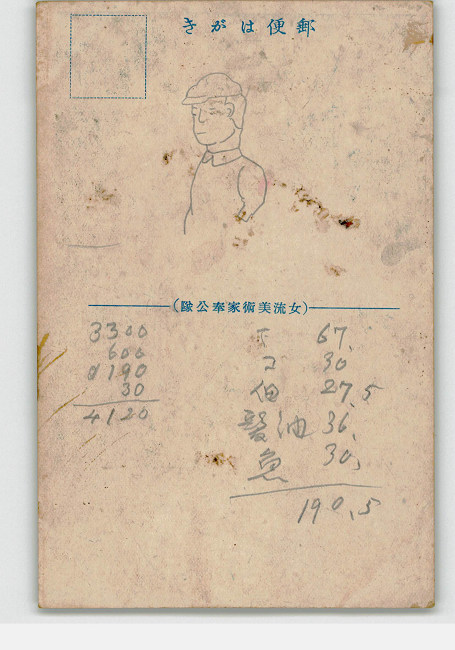 郵便はがき
(女流美術家奉公隊)
3300
600
190
30
4120
67.
コ 30
27.5
醤油 36.
魚 30.
190.5